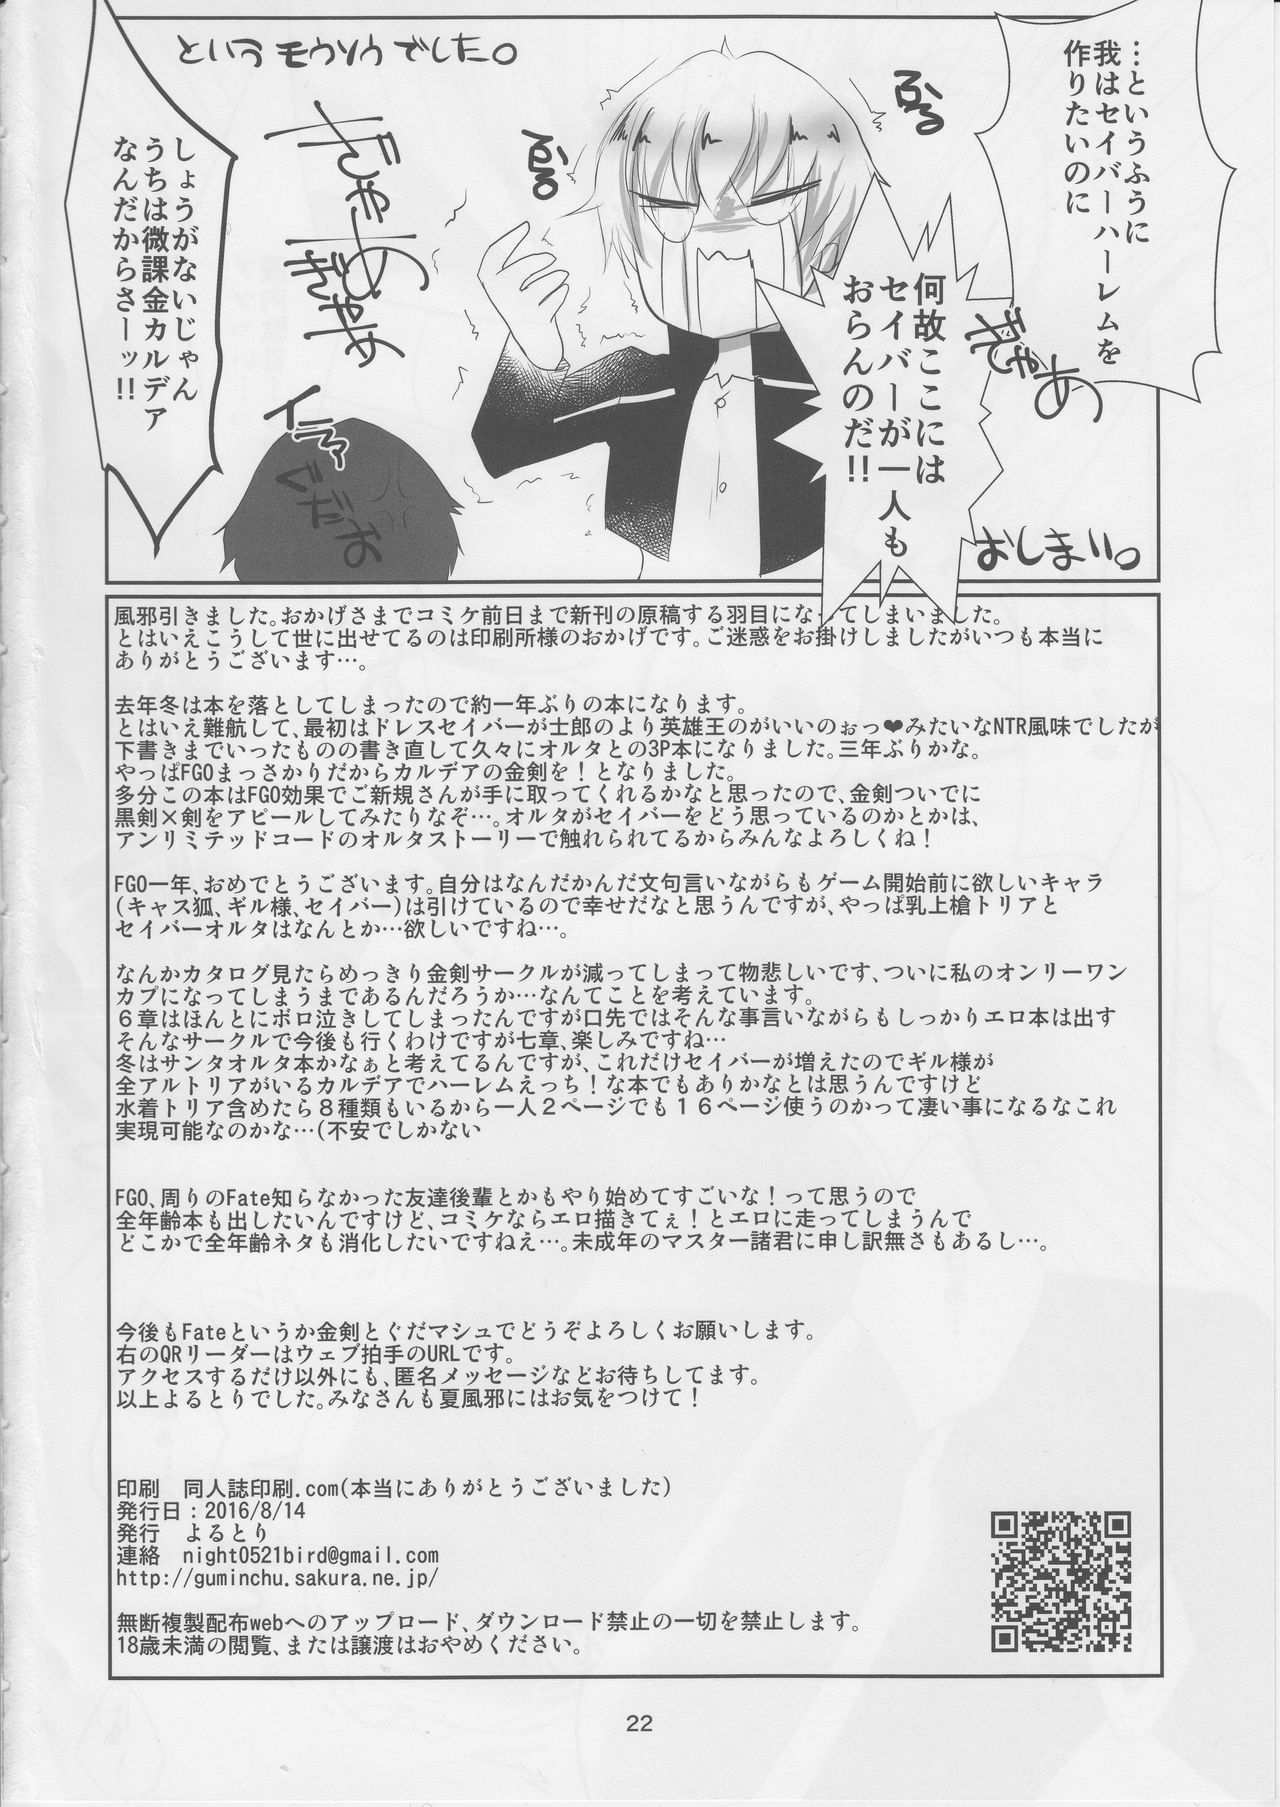 …というふうに
我はセイバーハーレムを
作りたいのに
ぷる
ぷる
何故ここには
セイバーが一人も
おらんのだ!!
ぎゃあ
というモウソウでした。
ぎゃあ
ぎゃぁ
しょうがないじゃん
うちは微課金カルデア
なんだからさーッ!!
イラ
ぐだお
おしまい。
風邪引きました。おかげさまでコミケ前日まで新刊の原稿する羽目になってしまいました。
とはいえこうして世に出せてるのは印刷所様のおかげです。ご迷惑をお掛けしましたがいつも本当に
ありがとうございます…。
去年冬は本を落としてしまったので約一年ぶりの本になります。
とはいえ難航して、最初はドレスセイバーが士郎のより英雄王のがいいのぉっ❤みたいなNTR風味でしたが
下書きまでいったものの書き直して久々にオルタとの3P本になりました。三年ぶりかな。
やっぱFGOまっさかりだからカルデアの金剣を！となりました。
多分この本はFGO効果でご新規さんが手に取ってくれるかなと思ったので、金剣ついでに
黒剣×剣をアピールしてみたりなぞ…。オルタがセイバーをどう思っているのかとかは、
アンリミテッドコードのオルタストーリーで触れられてるからみんなよろしくね！
FGO一年、おめでとうございます。自分はなんだかんだ文句言いながらもゲーム開始前に欲しいキャラ
(キャス狐、ギル様、セイバー)は引けているので幸せだなと思うんですが、やっぱ乳上槍トリアと
セイバーオルタはなんとか…欲しいですね…。
なんかカタログ見たらめっきり金剣サークルが減ってしまって物悲しいです、ついに私のオンリーワン
カプになってしまうまであるんだろうか…なんてことを考えています。
６章はほんとにボロ泣きしてしまったんですが口先ではそんな事言いながらもしっかりエロ本は出す
そんなサークルで今後も行くわけですが七章、楽しみですね…
冬はサンタオルタ本かなぁと考えてるんですが、これだけセイバーが増えたのでギル様が
全アルトリアがいるカルデアでハーレムえっち！な本でもありかなとは思うんですけど
水着トリア含めたら８種類もいるから一人２ページでも１６ページ使うのかって凄い事になるなこれ
実現可能なのかな…(不安でしかない
FGO、周りのFate知らなかった友達後輩とかもやり始めてすごいな！って思うので
全年齢本も出したいんですけど、コミケならエロ描きてぇ！とエロに走ってしまうんで
どこかで全年齢ネタも消化したいですねえ…。未成年のマスター諸君に申し訳無さもあるし…。
今後もFateというか金剣とぐだマシュでどうぞよろしくお願いします。
右のQRリーダーはウェブ拍手のURLです。
アクセスするだけ以外にも、匿名メッセージなどお待ちしてます。
以上よるとりでした。みなさんも夏風邪にはお気をつけて！
印刷　同人誌印刷.com(本当にありがとうございました)
発行日：2016/8/14
発行　よるとり
連絡　night0521bird@gmail.com
http://guminchu.sakura.ne.jp/
無断複製配布webへのアップロード、ダウンロード禁止の一切を禁止します。
18歳未満の閲覧、または譲渡はおやめください。
22